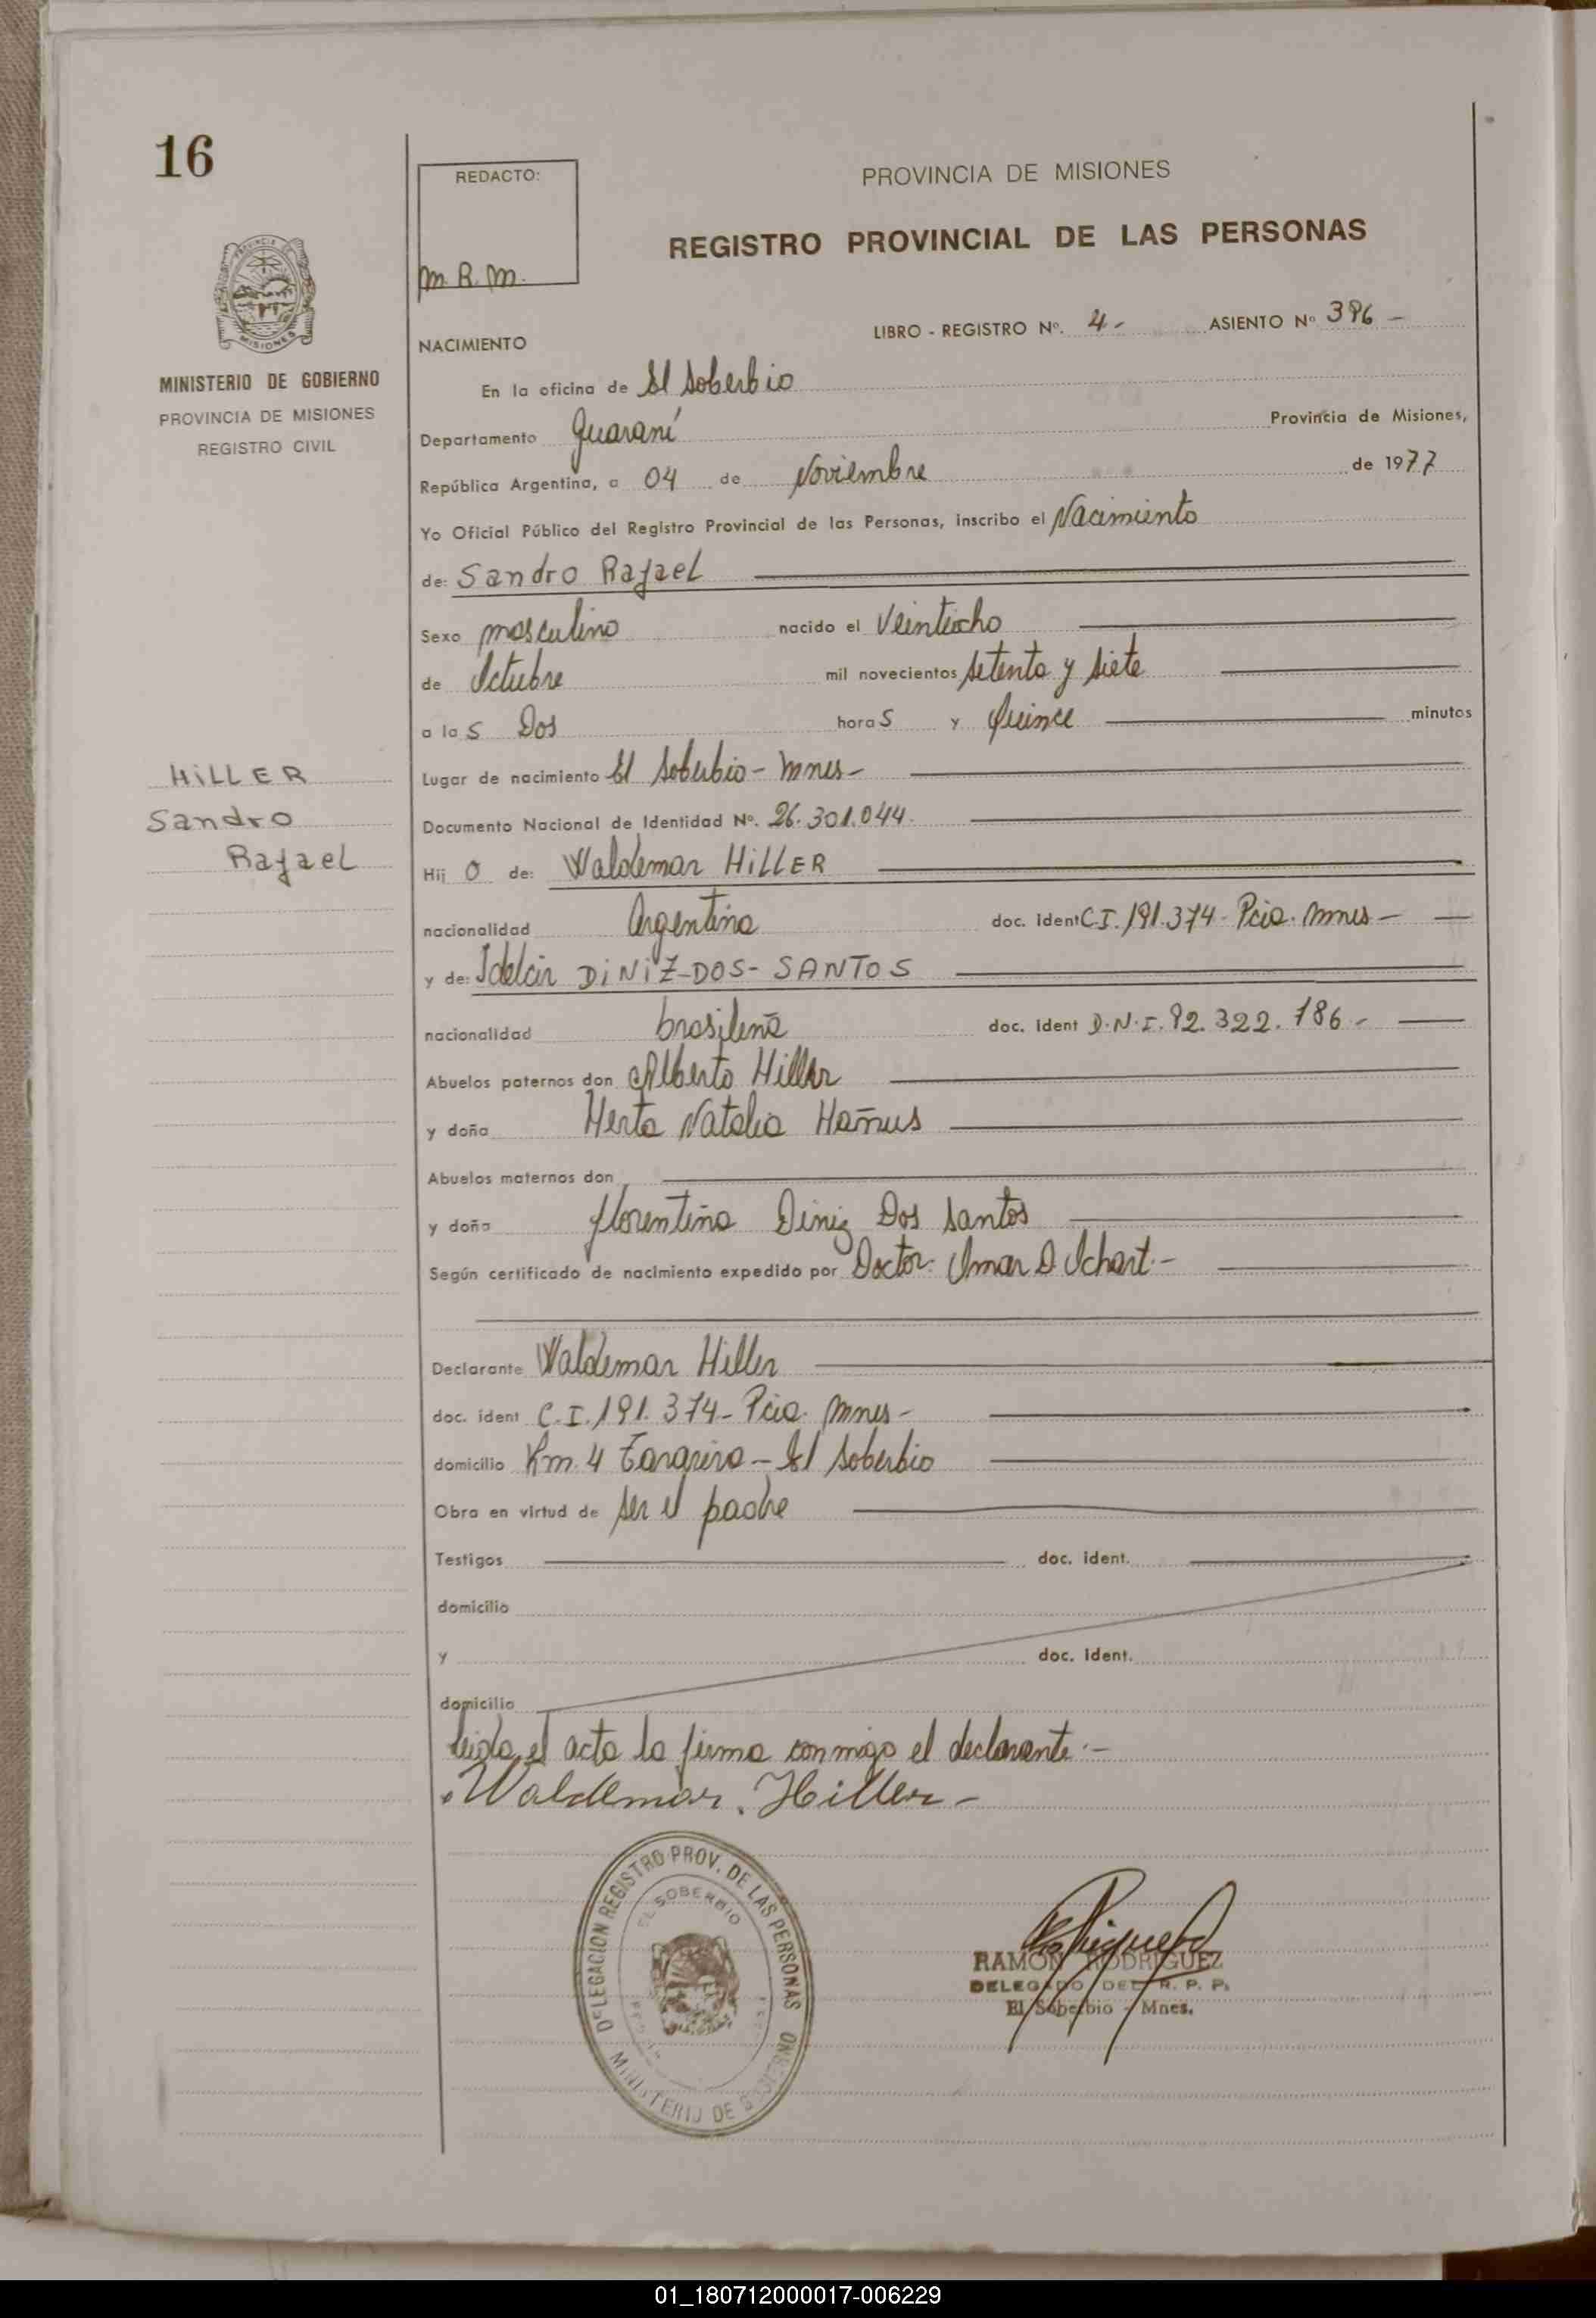 16
REDACTO:
M. R. M.
PROVINCIA DE MISIONES
REGISTRO PROVINCIAL DE LAS PERSONAS
MINISTERIO DE GOBIERNO
PROVINCIA DE MISIONES
REGISTRO CIVIL
LIBRO - REGISTRO Nº. 4 - ASIENTO Nº 396 -
NACIMIENTO
En la oficina de El Soberbio
Departamento Guaraní Provincia de Misiones,
República Argentina, a 04 de Noviembre de 1977
Yo Oficial Público del Registro Provincial de las Personas, inscribo el Nacimiento
de: Sandro Rafael
Sexo masculino nacido el Veintiocho
de Octubre mil novecientos setenta y siete
a las Dos horas y Quince minutos
HiLLER
Sandro
Rafael
Lugar de nacimiento El Soberbio - Mnes -
Documento Nacional de Identidad Nº. 26.301.044.
Hijo de: Waldemar HiLLER
nacionalidad Argentina doc. ident C.I. 191.374 - Pcia. Mnes -
y de: Idelcir DiNiZ-DOS-SANTOS
nacionalidad brasileña doc. ident D.N.I. 92.322.786 -
Abuelos paternos don Alberto Hiller
y doña Herta Natalia Hañus
Abuelos maternos don
y doña Florentina Diniz Dos Santos
Según certificado de nacimiento expedido por Doctor: Omar D. Ichart. -
Declarante Waldemar Hiller
doc. ident C.I. 191.374 - Pcia. Mnes -
domicilio Km. 4 - El Soberbio
Obra en virtud de ser el padre
Testigos doc. ident.
domicilio
y doc. ident.
domicilio
leida el acta la firma conmigo el declarante. -
Waldemar. Hiller -
DELEGACION REGISTRO PROV. DE LAS PERSONAS
EL SOBERBIO
MINISTERIO DE GOBIERNO
RAMON RODRIGUEZ
DELEGADO DEL R. P. P.
El Soberbio - Mnes.
01_180712000017-006229